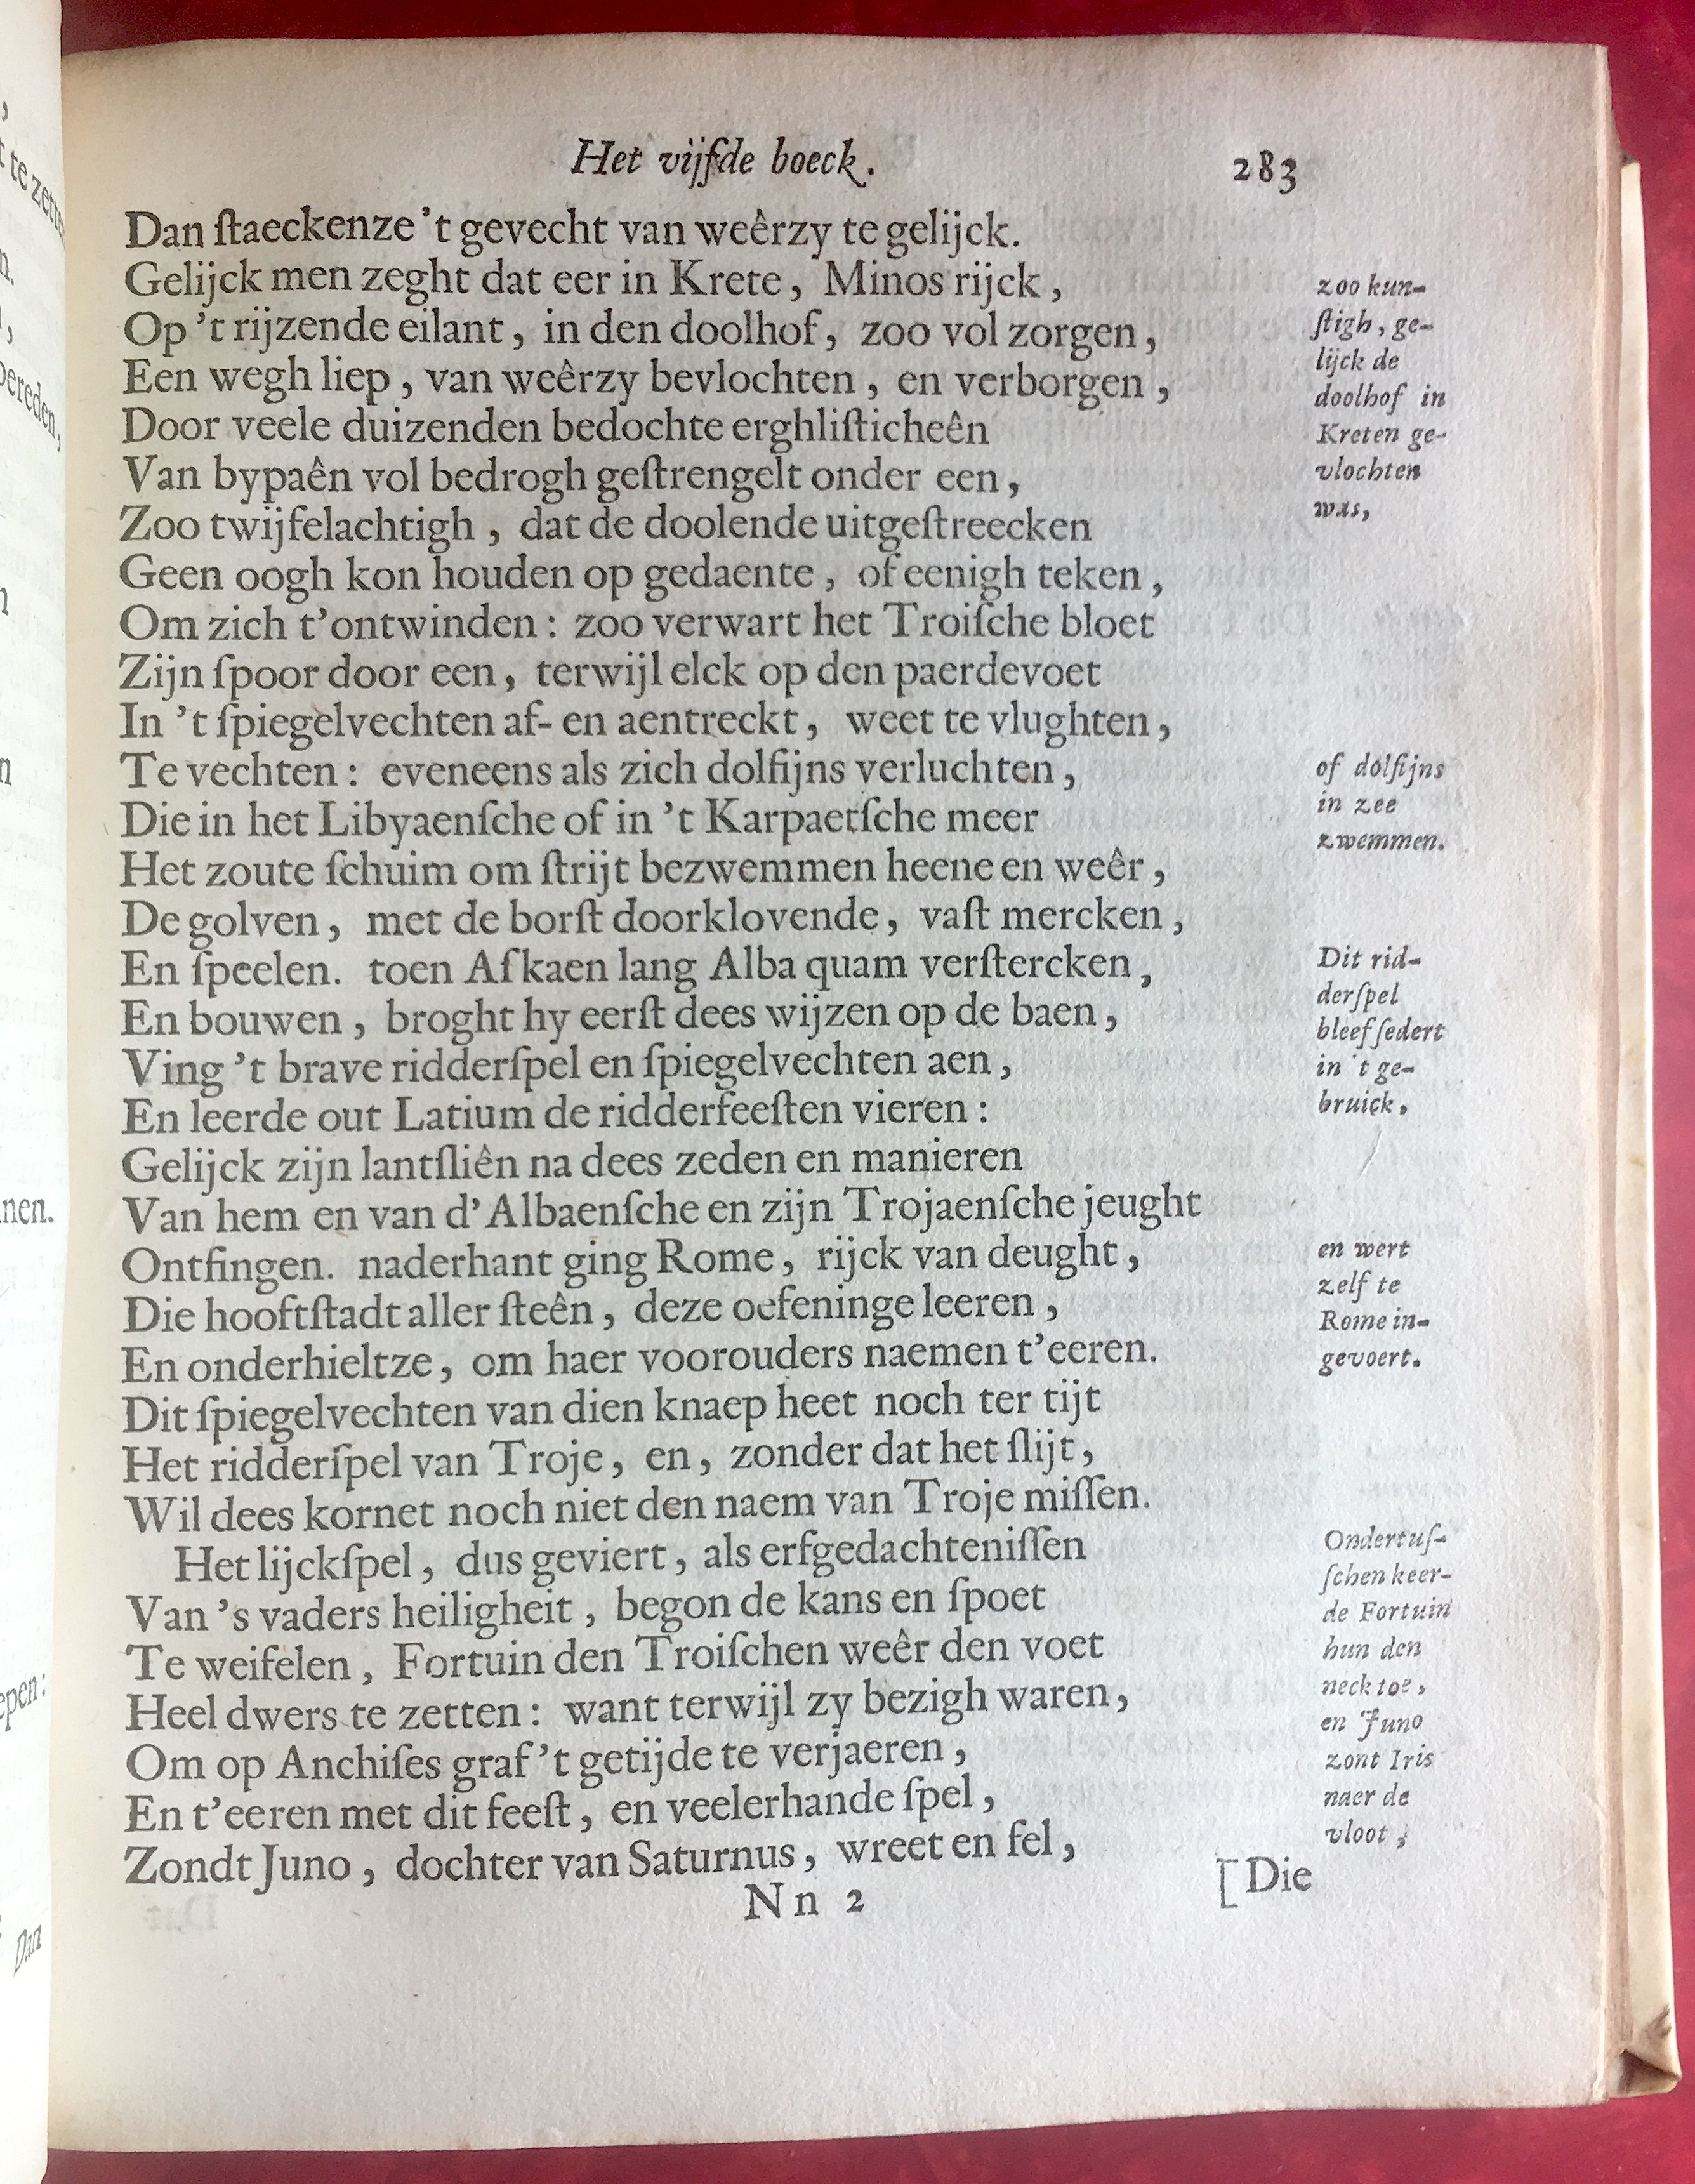 Het vijfde boeck.
283
Dan ſtaeckenze 't gevecht van weêrzy te gelijck.
Gelijck men zeght dat eer in Krete, Minos rijck,
Op 't rijzende eilant, in den doolhof, zoo vol zorgen,
Een wegh liep, van weêrzy bevlochten, en verborgen,
Door veele duizenden bedochte erghliſticheên
Van bypaên vol bedrogh geſtrengelt onder een,
Zoo twijfelachtigh, dat de doolende uitgeſtreecken
Geen oogh kon houden op gedaente, of eenigh teken,
Om zich t'ontwinden: zoo verwart het Troiſche bloet
Zijn ſpoor door een, terwijl elck op den paerdevoet
In 't ſpiegelvechten af- en aentreckt, weet te vlughten,
Te vechten: eveneens als zich dolfijns verluchten,
Die in het Libyaenſche of in 't Karpaetſche meer
Het zoute ſchuim om ſtrijt bezwemmen heene en weêr,
De golven, met de borſt doorklovende, vaſt mercken,
En ſpeelen. toen Aſkaen lang Alba quam verſtercken,
En bouwen, broght hy eerſt dees wijzen op de baen,
Ving 't brave ridderſpel en ſpiegelvechten aen,
En leerde out Latium de ridderfeeſten vieren:
Gelijck zijn lantſliên na dees zeden en manieren
Van hem en van d'Albaenſche en zijn Trojaenſche jeught
Ontfingen. naderhant ging Rome, rijck van deught,
Die hooftſtadt aller ſteên, deze oefeninge leeren,
En onderhieltze, om haer voorouders naemen t'eeren.
Dit ſpiegelvechten van dien knaep heet noch ter tijt
Het ridderſpel van Troje, en, zonder dat het ſlijt,
Wil dees kornet noch niet den naem van Troje miſſen.
Het lijckſpel, dus geviert, als erfgedachteniſſen
Van 's vaders heiligheit, begon de kans en ſpoet
Te weifelen, Fortuin den Troiſchen weêr den voet
Heel dwers te zetten: want terwijl zy bezigh waren,
Om op Anchiſes graf 't getijde te verjaeren,
En t'eeren met dit feeſt, en veelerhande ſpel,
Zondt Juno, dochter van Saturnus, wreet en fel,
Nn 2
[Die
zoo kun-
ſtigh, ge-
lijck de
doolhof in
Kreten ge-
vlochten
was,
of dolfijns
in zee
zwemmen.
Dit rid-
derſpel
bleef ſedert
in 't ge-
bruick,
en wert
zelf te
Rome in-
gevoert.
Ondertuſ-
ſchen keer-
de Fortuin
hun den
neck toe,
en Juno
zont Iris
naer de
vloot;
t te zette
nen.
Dan